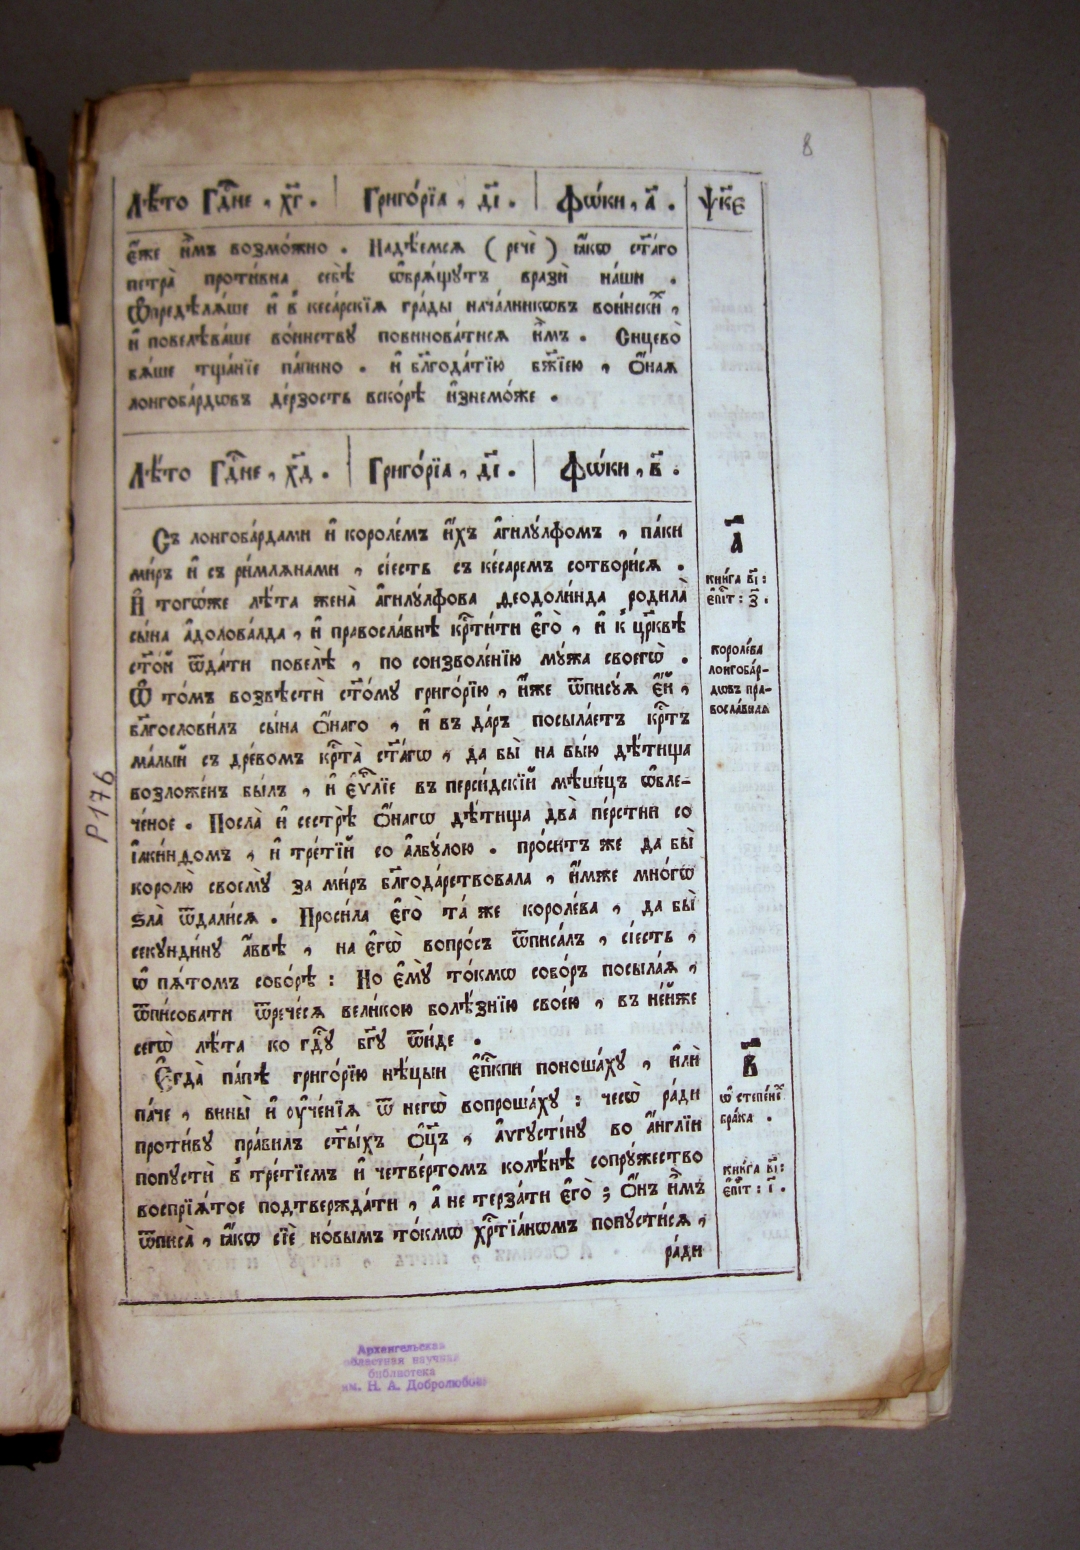 8
Лѣ́то Гдⷭ҇не , х҃г . Григо́рїа , д҃і . Фѡ́ки , а҃ . ѱ҃кє
є҆́же и҆̀мъ возмо́жно . Надѣ́емся ( речѐ ) ꙗ҆́кѡ ст҃а́го
петра̀ проти́вна себѣ̀ ѡ҆бря́щутъ вразѝ на́ши .
Ѡ҆предѣлѧ́ше и҆ в҆ кесарскїѧ гра́ды нача́лникѡвъ во́инскиⷯ ,
и҆ повелѣва́ше во́инству повинова́тися и҆̀мъ . Сицево̀
бѧ́ше тща́нїе па́пино . и҆ бл҃года́тїю бж҃їею , ѻ҆́наѧ
лонгоба́рдѡвъ де́рзость вско́рѣ и҆знемо́же .
Лѣ́то Гдⷭ҇не , х҃д . Григо́рїа , д҃і . Фѡ́ки , в҃ .
Съ лонгоба́рдами и҆ короле́мъ и҆́хъ а҆гилу́лфомъ , па́ки
ми́ръ и҆ съ ри́млѧнами , сі́есть съ ке́саремъ сотвори́сѧ .
И҆ тогѡ́же лѣ́та жена̀ а҆гилу́лфова деодоли́нда родила̀
сы́на а҆долова́лда , и҆ правосла́внѣ крⷭ҇ти́ти є҆го̀ , и҆ к҆ цр҃квѣ
ст҃о́й ѿда́ти повелѣ̀ , по соизволе́нїю мꙋ́жа своегѡ̀ .
Ѡ҆ то́мъ возвѣстѝ ст҃о́му григо́рїю , и҆́же ѿпису́ѧ є҆́й ,
бл҃гослови́лъ сы́на ѻ҆́наго , и҆ въ да́ръ посыла́етъ крⷭ҇тъ
ма́лый съ дре́вомъ крⷭ҇та̀ ст҃а́гѡ , да бы̀ на вы́ю дѣ́тища
возложе́нъ бы́лъ , и҆ є҆ѵⷢ҇лїе въ перси́дскїй мѣше́цъ ѡ҆бле-
че́ное . Посла̀ и҆ сестрѣ̀ ѻ҆́нагѡ дѣ́тища два̀ пе́рстни со
і҆аки́ндомъ , и҆ тре́тїй со а҆лбу́лою . про́ситъ же да бы̀
королю̀ своемꙋ̀ за ми́ръ бл҃года́рствовала , и҆́мже мно́гѡ
ѕла̀ ѿдали́сѧ . Проси́ла є҆го̀ та́ же короле́ва , да бы̀
секунди́ну а҆́ввѣ , на є҆гѡ̀ вопро́съ ѿписа́лъ , сі́есть ,
ѡ҆ пѧ́томъ собо́рѣ : Но є҆мꙋ̀ то́кмѡ собо́ръ посыла́ѧ ,
ѿпи́совати ѿрече́сѧ вели́кою болѣ́знїю свое́ю , въ не́йже
сегѡ̀ лѣ́та ко гдⷭ҇у бг҃у ѿи́де .
Е҆гда̀ па́пѣ григо́рїю нѣ́цыи є҆пⷭ҇кпи поноша́ху , и҆лѝ
па́че , вины̀ и҆ ᲂу҆че́нїѧ ѿ негѡ̀ вопроша́ху : чесѡ̀ ра́ди
проти́ву пра́вилъ ст҃ы́хъ ѻ҆ц҃ъ , а҆ѵгусті́ну во а҆́нглїи
попустѝ в҆ тре́тїемъ и҆ четве́ртомъ колѣ́нѣ сопру́жество
воспрїѧ́тое подтвержда́ти , а҆ не терза́ти є҆го̀ ; ѻ҆́нъ и҆̀мъ
ѿписа̀ , ꙗ҆́кѡ сїѐ но́вымъ то́кмѡ хрⷭ҇тїа́нѡмъ попусти́сѧ ,
ра́ди
а҃
кни́га в҃і :
є҆пі́ст : з҃ .
короле́ва
лонгоба́р-
дѡвъ пра-
восла́внаѧ
в҃
ѡ҆ степе́неⷯ
бра́ка .
кни́га в҃і :
є҆пі́ст : і҃ .
Р176
Архангельская
областная научная
библиотека
им. Н. А. Добролюбова